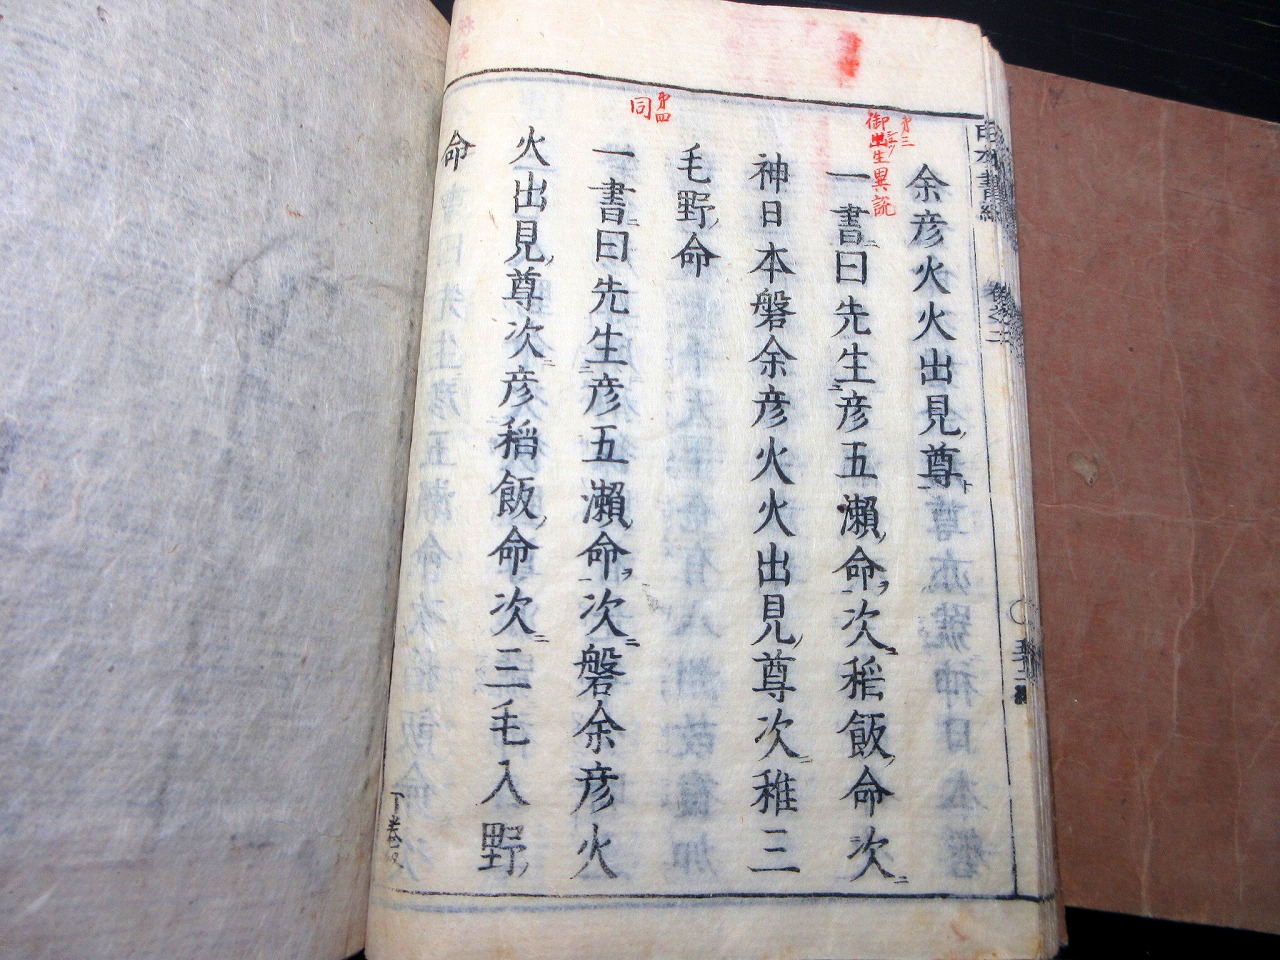 余彦火火出見尊
第三
御出生異説
一書曰先生彦五瀬命次稻飯命次
神日本磐余彦火火出見尊次稚三
毛野命
第四
同
一書曰先生彦五瀬命次磐余彦火
火出見尊次彦稻飯命次三毛入野
命